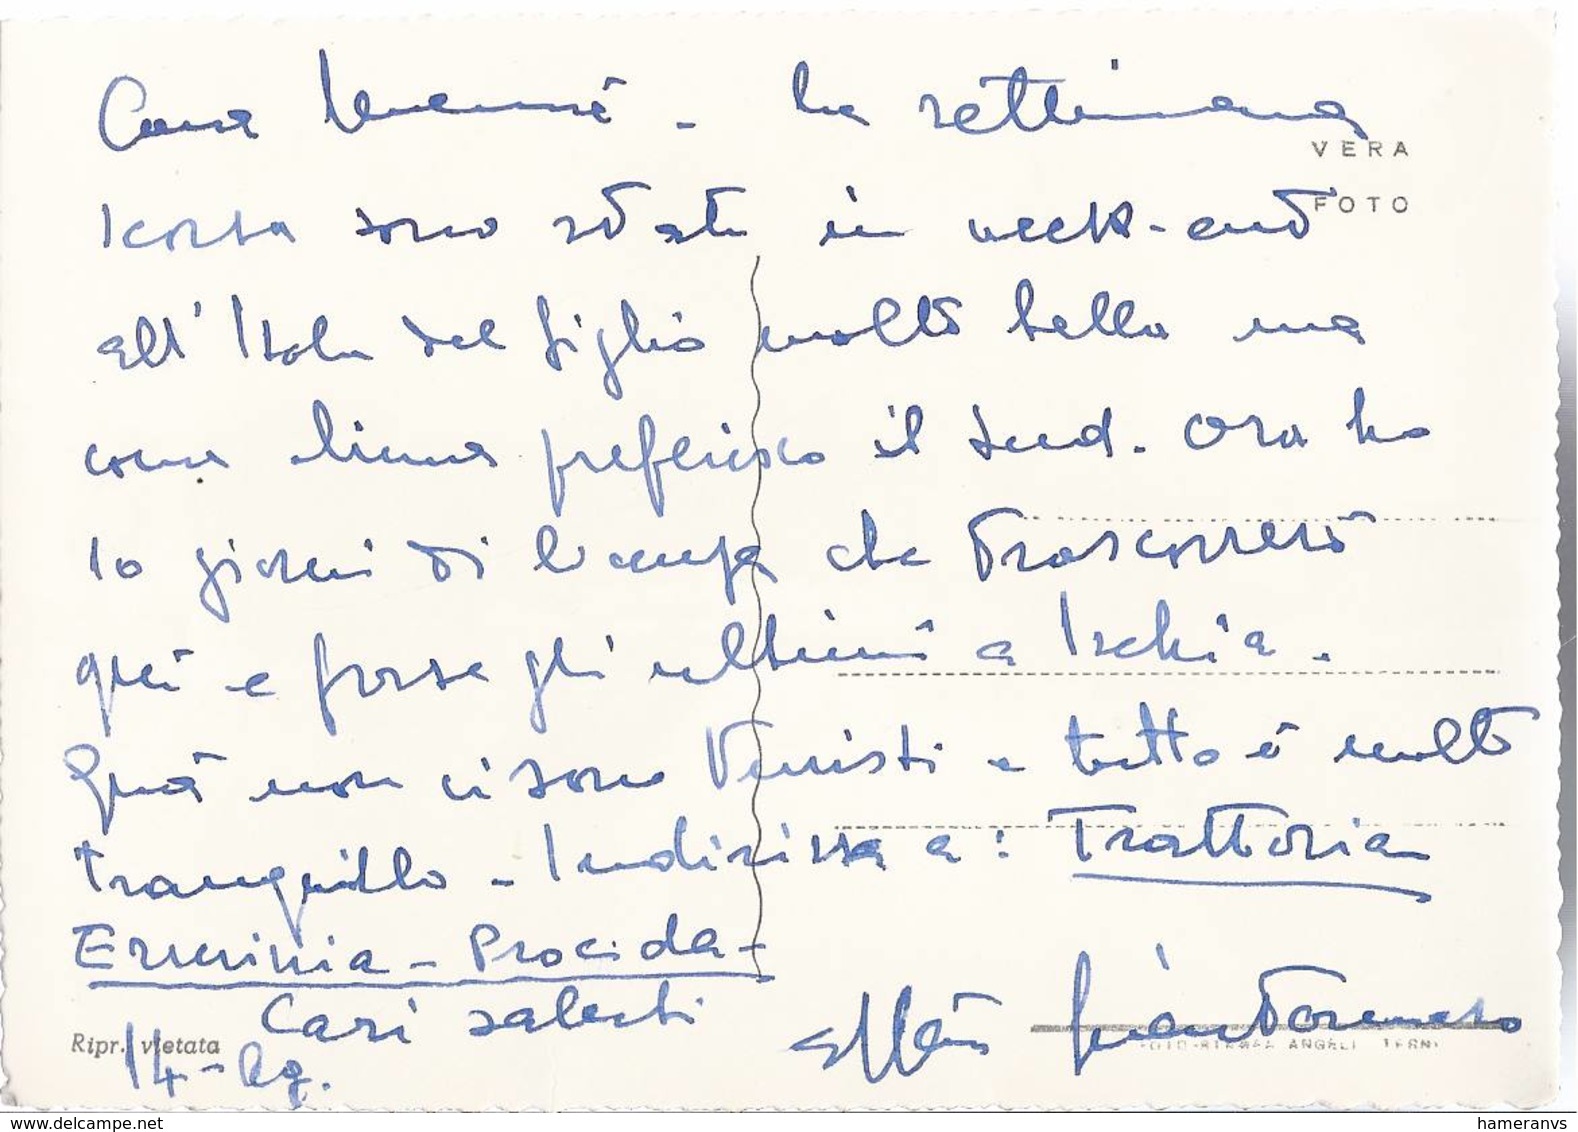 Cara - La settimana
VERA
scorsa sono stata in week-end
FOTO
all'Isola del Giglio molto bella ma
come clima preferisco il Sud. Ora ho
10 giorni di vacanza che trascorrerò
qui e forse gli ultimi a Ischia.
Quà non ci sono turisti e tutto è molto
tranquillo - Indirizza a: Trattoria
- Procida -
Cari saluti
Ripr. vietata
14 - Ag.
FOTO-STAMPA ANGELI TERNI
www.delcampe.net
hameranvs